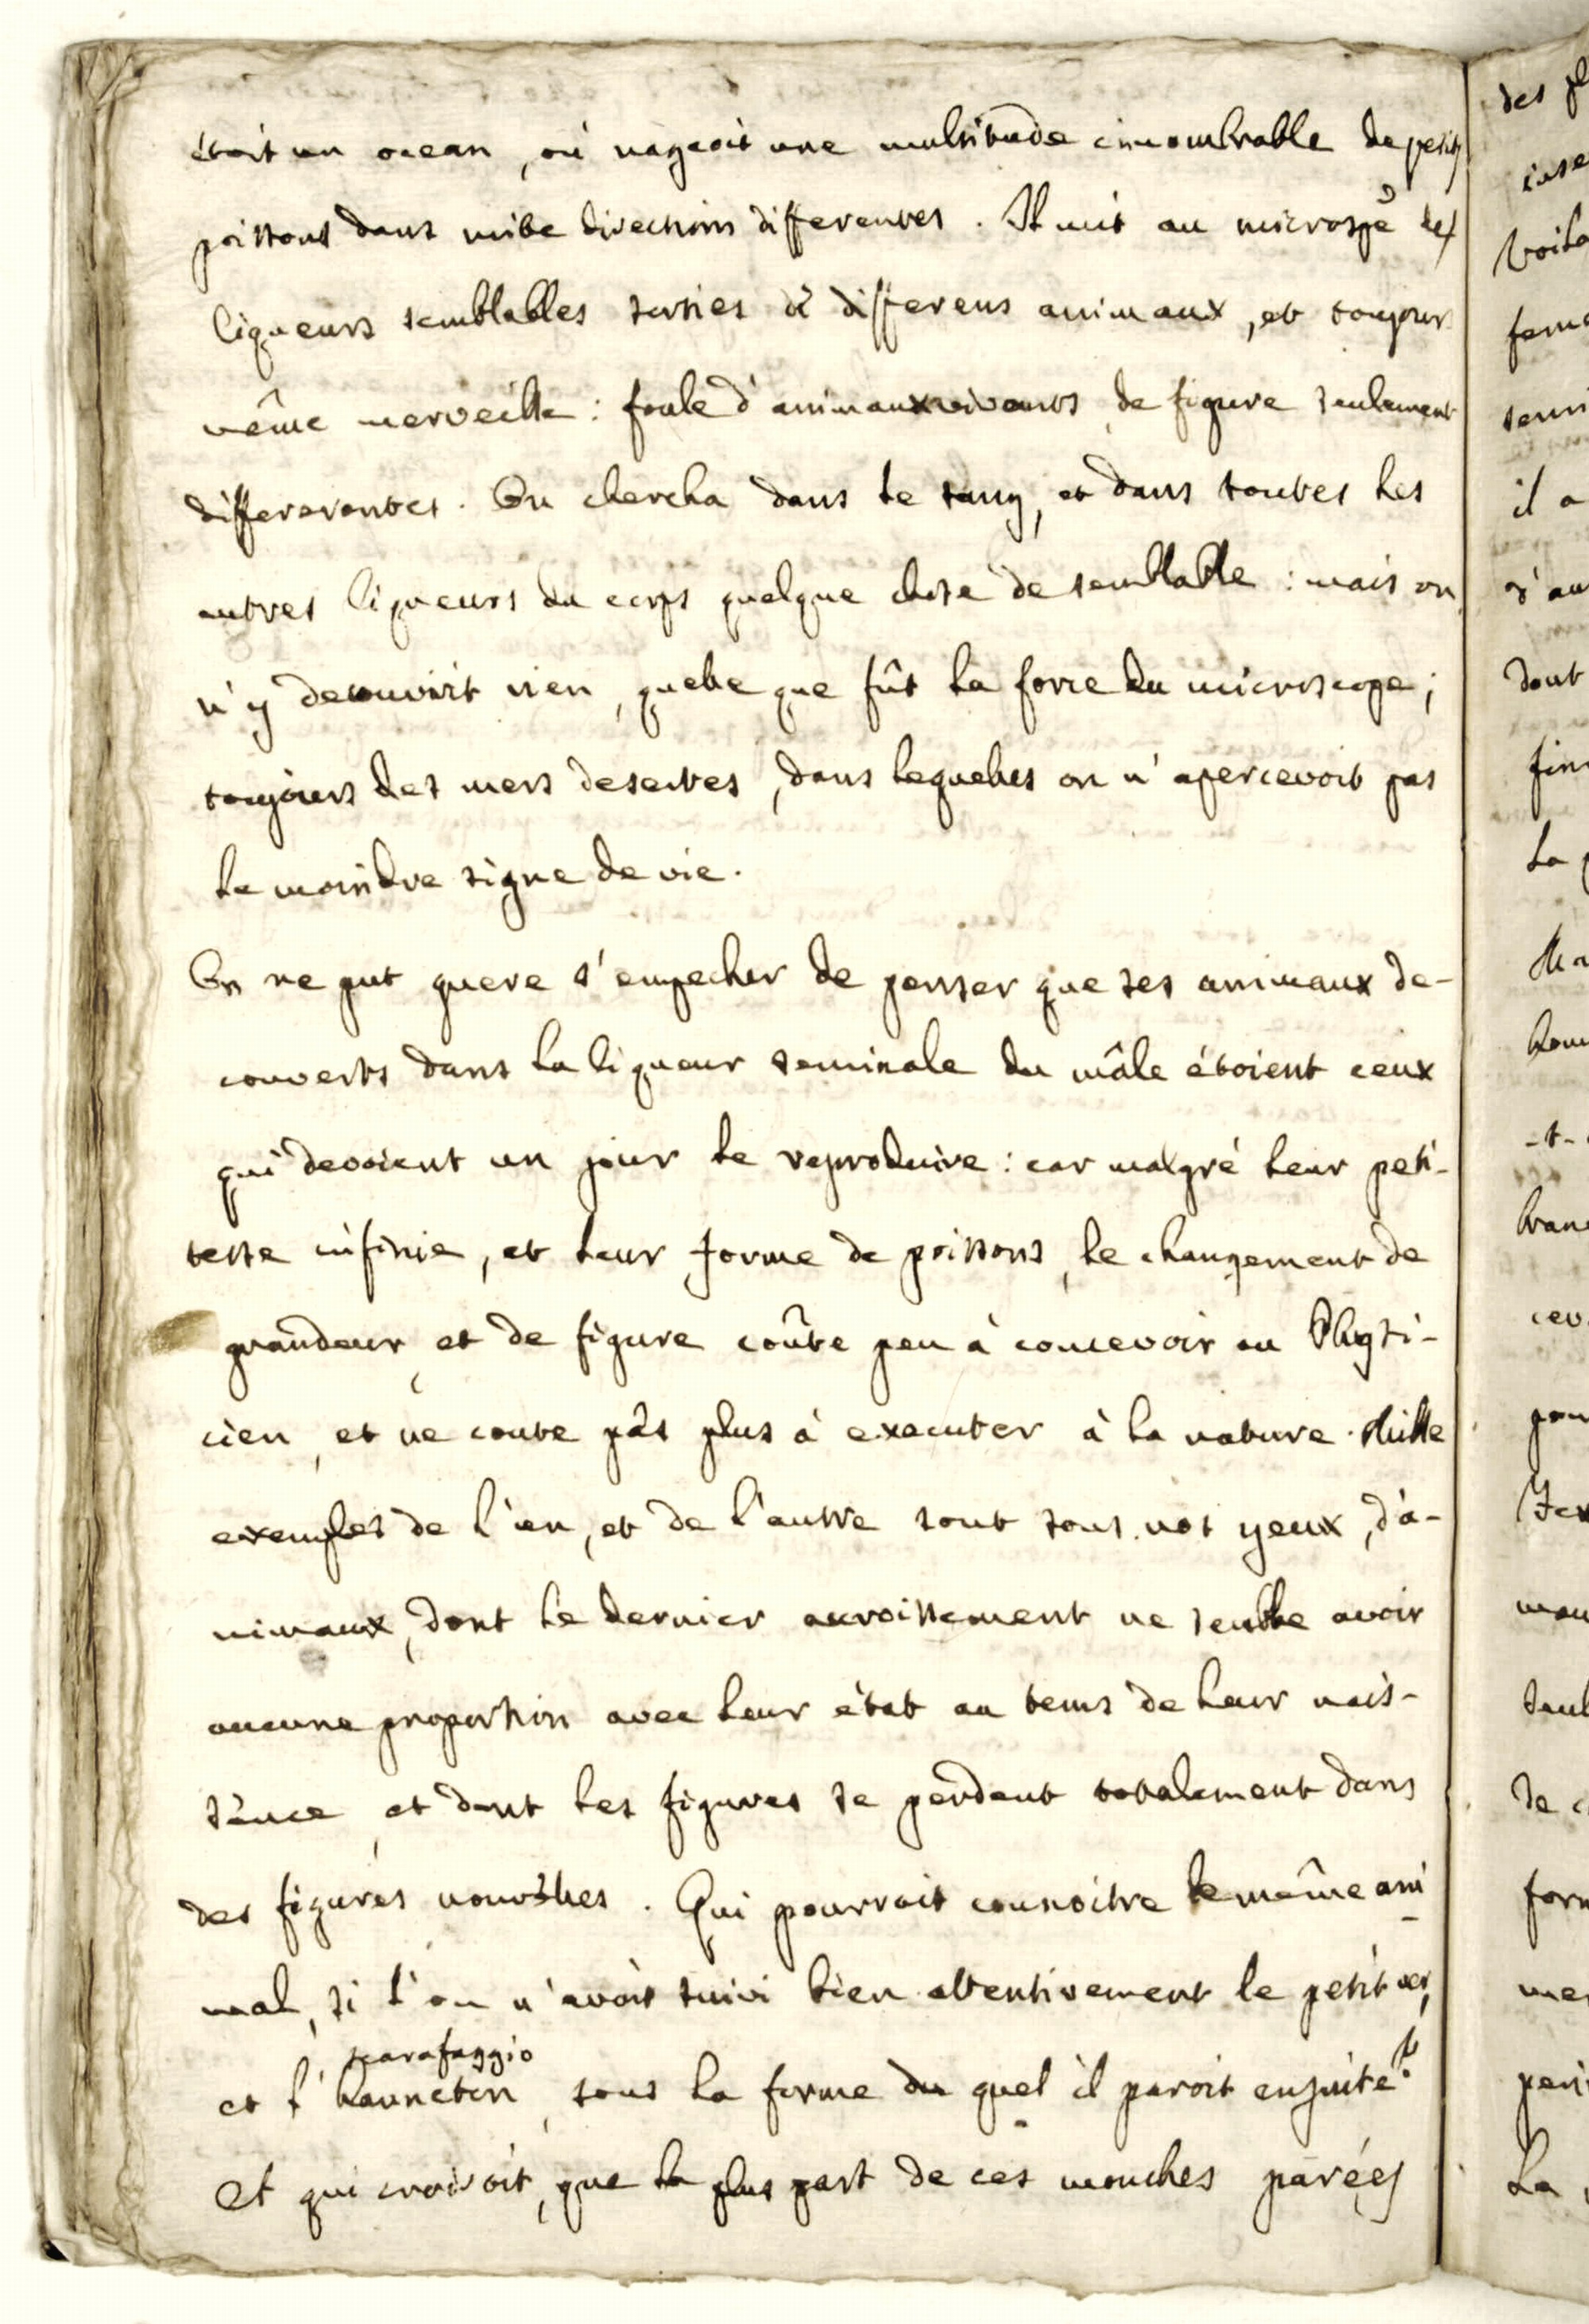 étoit un ocean, où nageoit une multitude innombrable de petits
poissons dans mille directions differentes. Il mit au microspe des
liqueurs semblables sorties d differens animaux, et toujours
même merveille: foule d'animaux vivants de figure seulement
differerentes. On chercha dans le sang, et dans toutes les
autres liqueurs du corps quelque chose de semblable: mais on
n'y decouvrit rien, quelle que fût la force du microscope;
toujours des mers desertes, dans lequelles on n'apercevoit pas
le moindre signe de vie.
On ne put guere s'empecher de penser que ses animaux de-
couverts dans la liqueur seminale du mâle étoient ceux
qui devoient un jour le reproduire: car malgré leur peti-
tesse infinie, et leur forme de poissons, le changement de
grandeur, et de figure coûte peu à concevoir au Physi-
cien, et ne coute pas plus à executer à la nature. Mille
exemples de l'un, et de l'autre sont sous nos yeux, d'a-
nimaux, dont le dernier accroissement ne semble avoir
aucune proportion avec leur état au tems de leur nais-
sence, et dont les figures se perdent totalement dans
des figures nouvelles. Qui pourroit connoitre le même ani
mal, si l'on n'avoit suivi bien attentivement le petit ver,
scarafaggio
et l'hanneton, sous la forme du quel il paroit ensuite?
Et qui croiroit, que la plus part de ces mouches parées
des
il a
d'au
dont
la
-t-
de
La